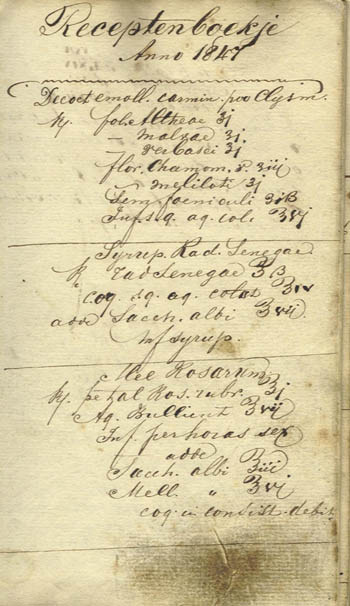 Receptenboekje
Anno 1847
Decoct emoll. carmin. pro Clysm.
℞. fol. Altheae ʒj
— Malvae ʒj.
— Verbasci ʒj
flor. Chamom. v. ʒiij
— meliloti ʒj
Sem foeniculi ʒiβ
Inf. s. q. aq. col. ℥vj
Syrup. Rad. Senegae.
℞ rad Senegae ℥β
coq. sq. aq. colat ℥iv
adde Sacch. albi ℥vij
mf syrup.
Mel Rosarum.
℞. petal Ros. rubr. ℥j
Aq. Bullient ℥vij
Inf. per horas sex
adde
Sacch. albi ℥iij
Mell. " ℥vj
coq. in consist. debit.